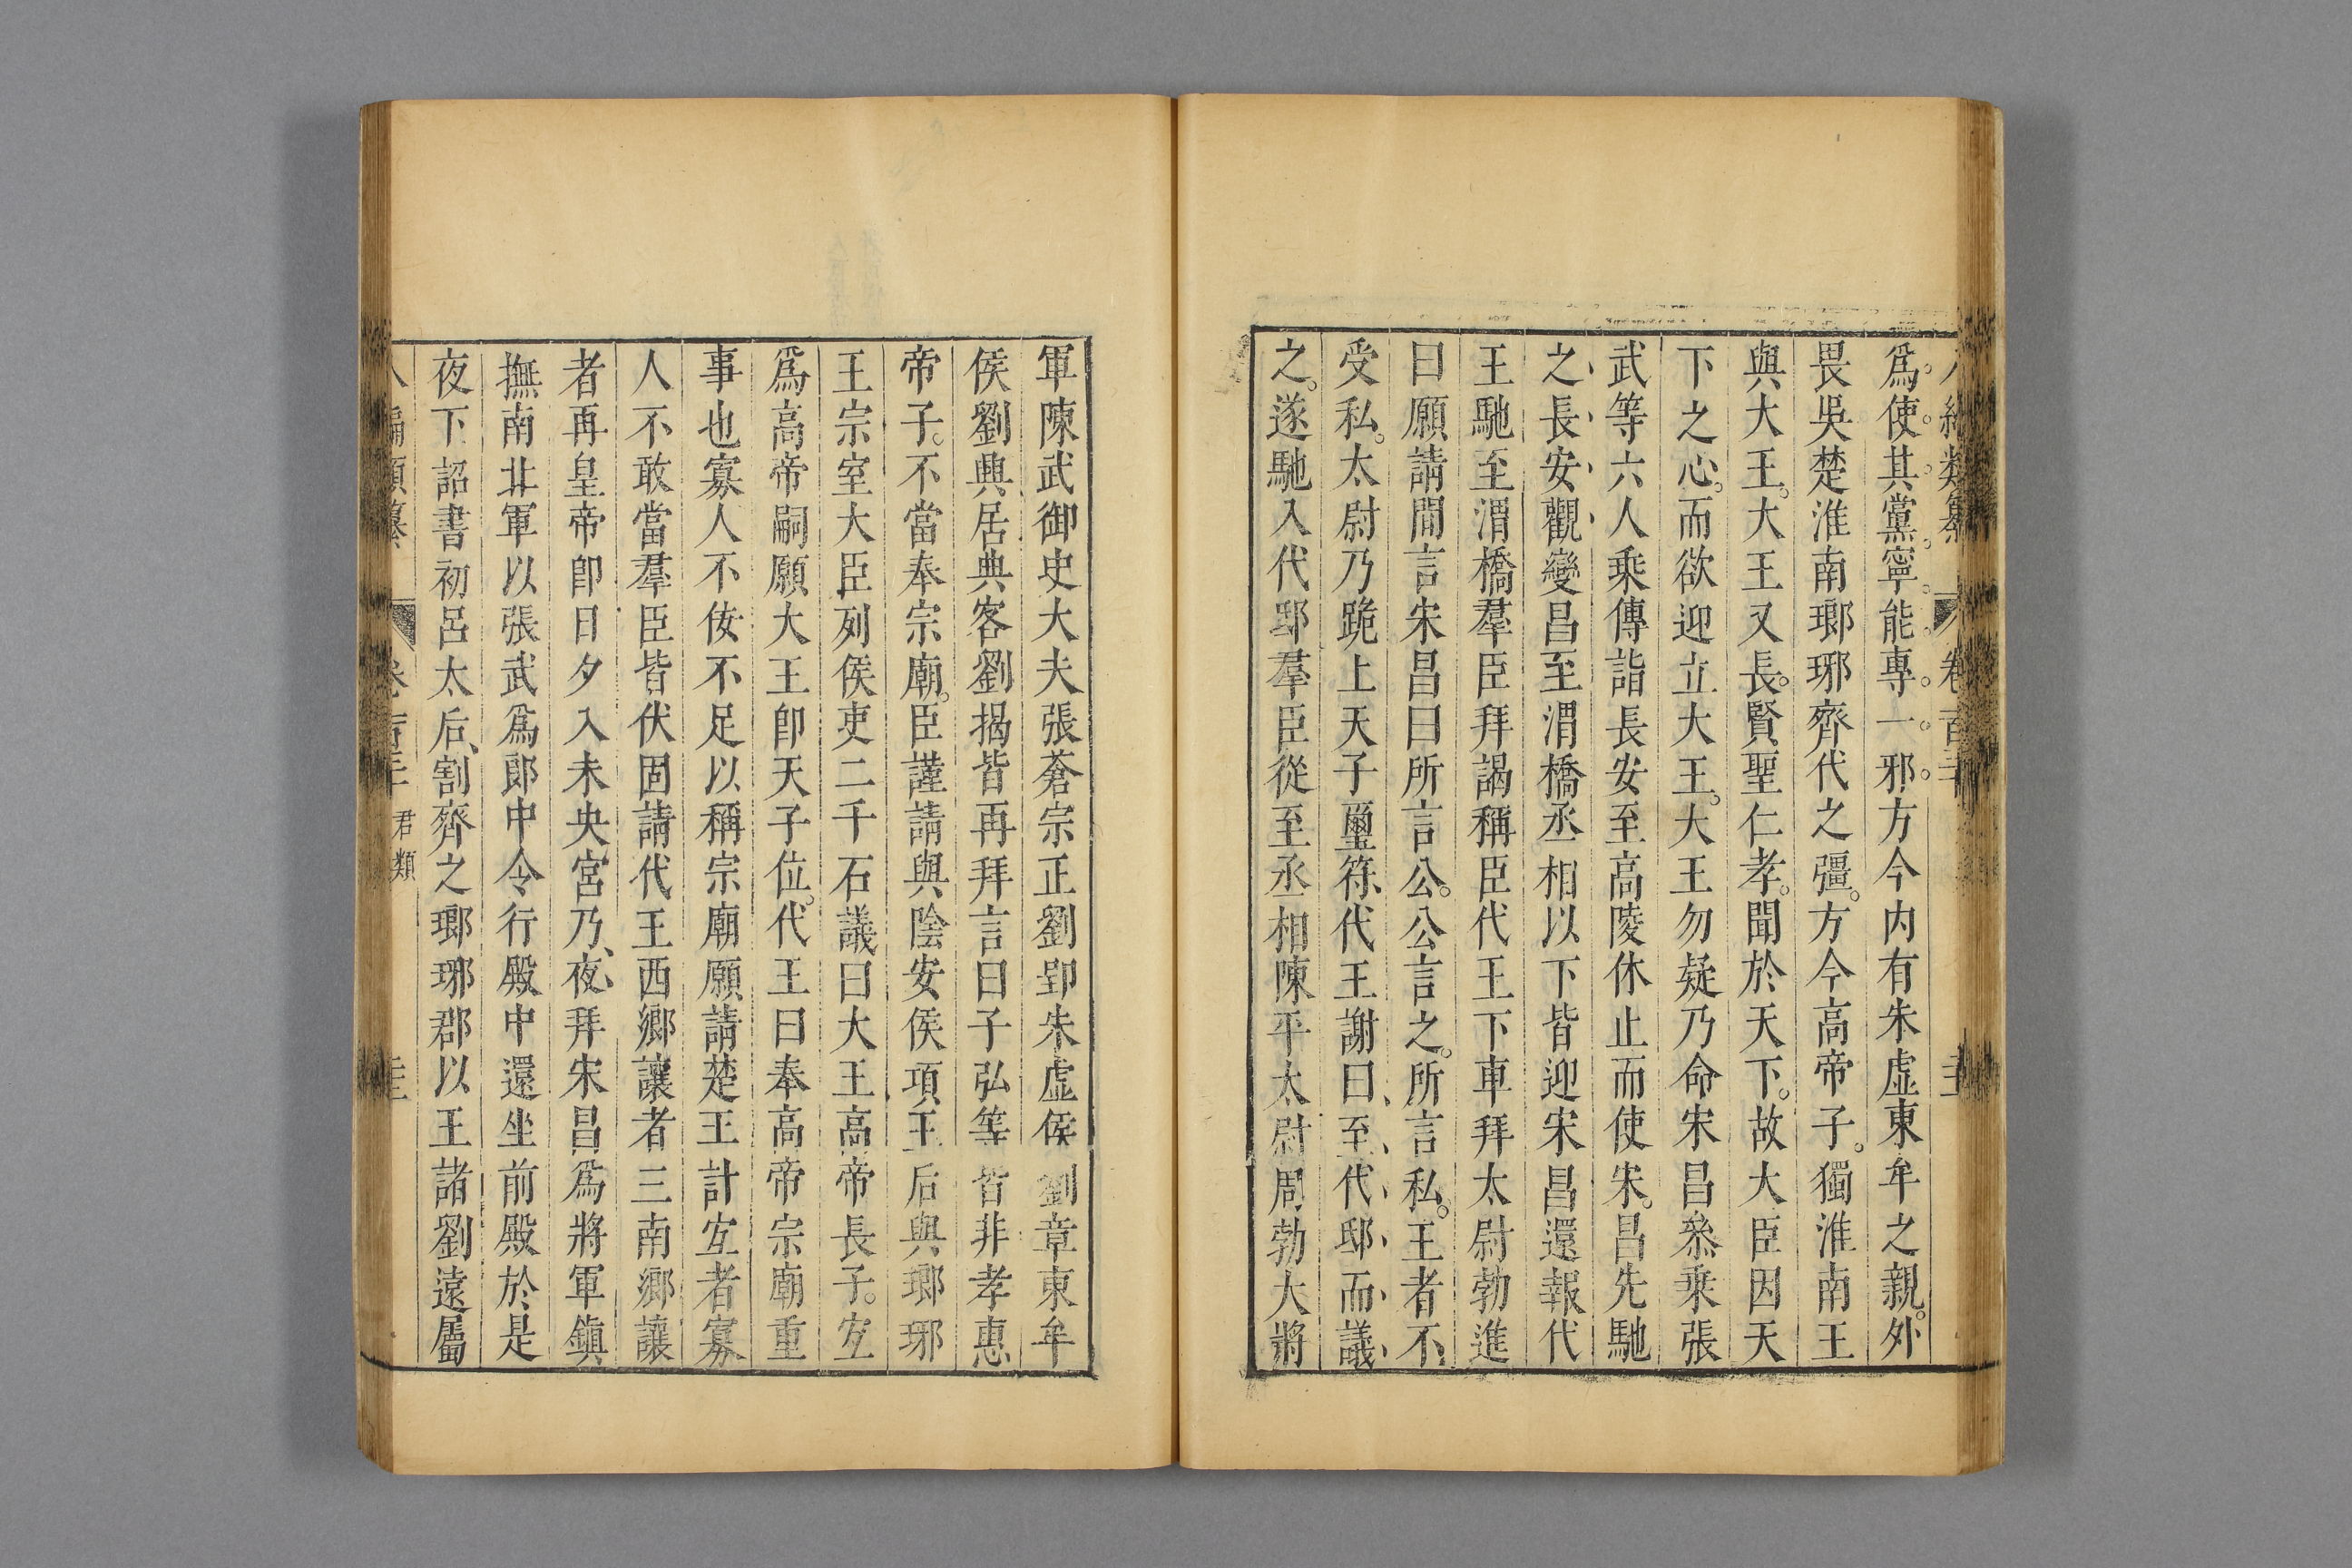 爲使其黨寧能專一邪方今内有朱虛東牟之親外
畏吳楚淮南瑯琊齊代之彊方今高帝子獨淮南王
與大王大王又長賢聖仁孝聞於天下故大臣因天
下之心而欲迎立大王大王勿疑乃命宋昌叅乘張
武等六人乘傳詣長安至高陵休止而使宋昌先馳
之長安觀變昌至渭橋丞相以下皆迎宋昌還報代
王馳至渭橋羣臣拜謁稱臣代王下車拜太尉勃進
曰願請間言宋昌曰所言公公言之所言私王者不
受私太尉乃跪上天子璽符代王謝曰至代邸而議
之遂馳入代邸羣臣從至丞相陳平太尉周勃大將
軍陳武御史大夫張蒼宗正劉郢朱虛侯劉章東牟
侯劉興居典客劉揭皆再拜言曰子弘等皆非孝惠
帝子不當奉宗廟臣謹請與陰安侯項王后與瑯琊
王宗室大臣列侯吏二千石議曰大王高帝長子宜
爲高帝嗣願大王卽天子位代王曰奉高帝宗廟重
事也寡人不佞不足以稱宗廟願請楚王計宜者寡
人不敢當羣臣皆伏固請代王西鄉讓者三南鄉讓
者再皇帝卽日夕入未央宮乃夜拜宋昌爲將軍鎭
撫南北軍以張武爲郞中令行殿中還坐前殿於是
夜下詔書初呂太后割齊之瑯琊郡以王諸劉遠屬
君類